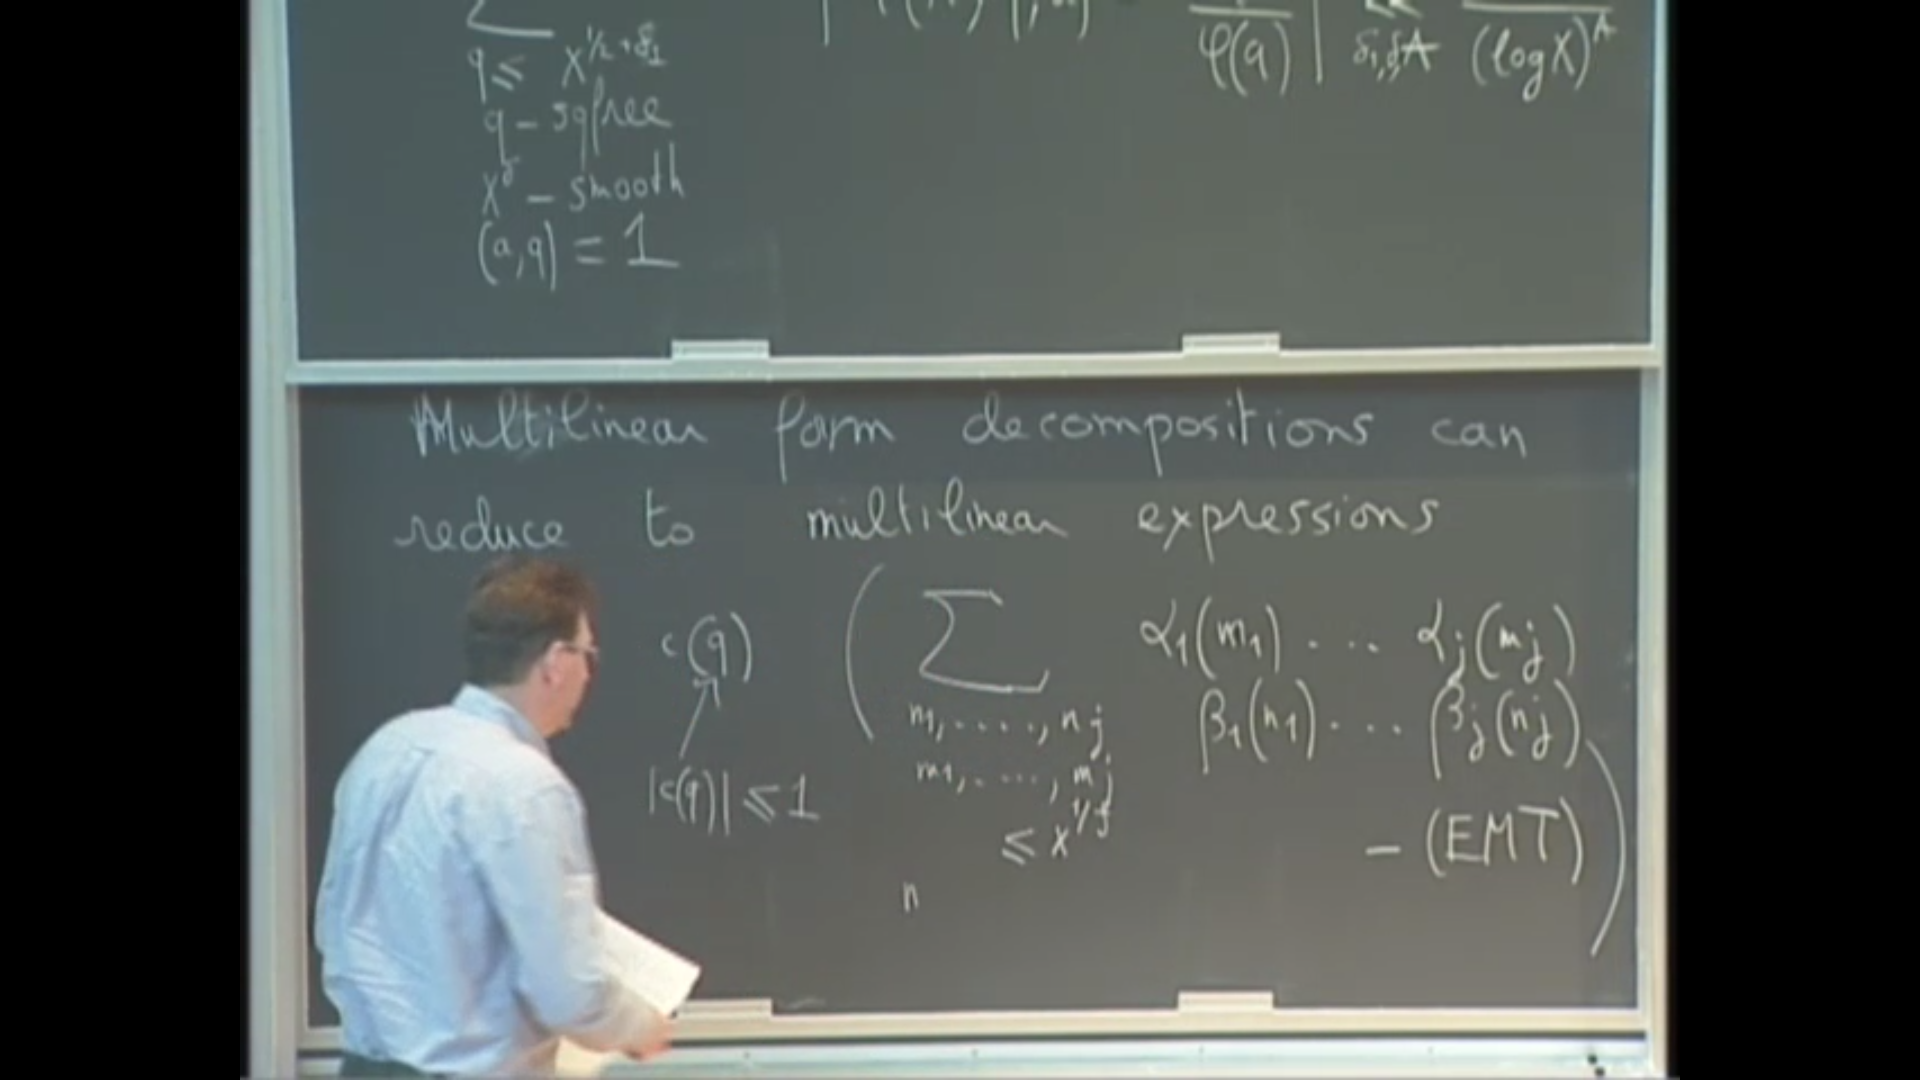 ∑
q ≤ X^{1/2+δ_1}
q – sqfree
X^δ – smooth
(a,q) = 1
φ(q) | ≪_{δ_1,δ,A} (log X)^A
Multilinear form decompositions can
reduce to multilinear expressions
c(q) ( ∑ α_1(m_1) ... α_j(m_j)
m_1, ...., n_j β_1(n_1) ... β_j(n_j)
|c(q)| ≤ 1 m_1, ...., m_j
≤ X^{1/J} – (EMT) )
n